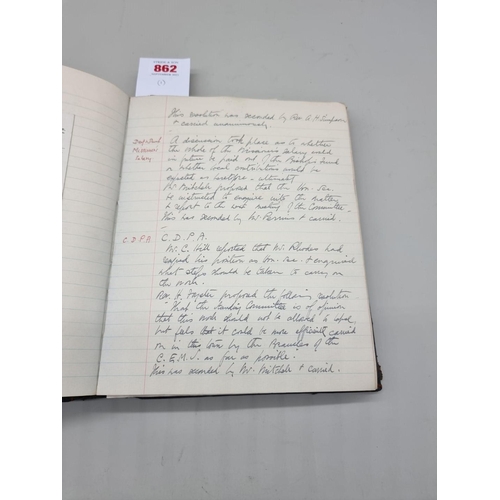 862
(1)
This resolution was seconded by Rev. A. H. Simpson
+ carried unanimously.
Deaf + Dumb
Missioner's
Salary
A discussion took place as to whether
the whole of the Missioners salary could
in future be paid out of the Benefit Fund
or whether local contributions would be
expected as heretofore - ultimately
Mr Mitchell proposed that the Hon. Sec.
be instructed to enquire into the matter
+ report to the next meeting of the Committee.
This was seconded by Mr Perrins + carried.
C.D.P.A.
C.D.P.A.
Mr. C. Hill reported that Mr Rhodes had
resigned his position as Hon. Sec. + enquired
what steps should be taken to carry on
the work.
Rev. H. Forster proposed the following resolution
"That the Standing Committee is of opinion
that this work should not be allowed to stop,
but feels that it could be more efficiently carried
on in this town by the Branches of the
C.E.M.S. as far as possible.
This was seconded by Mr. Mitchell + carried.